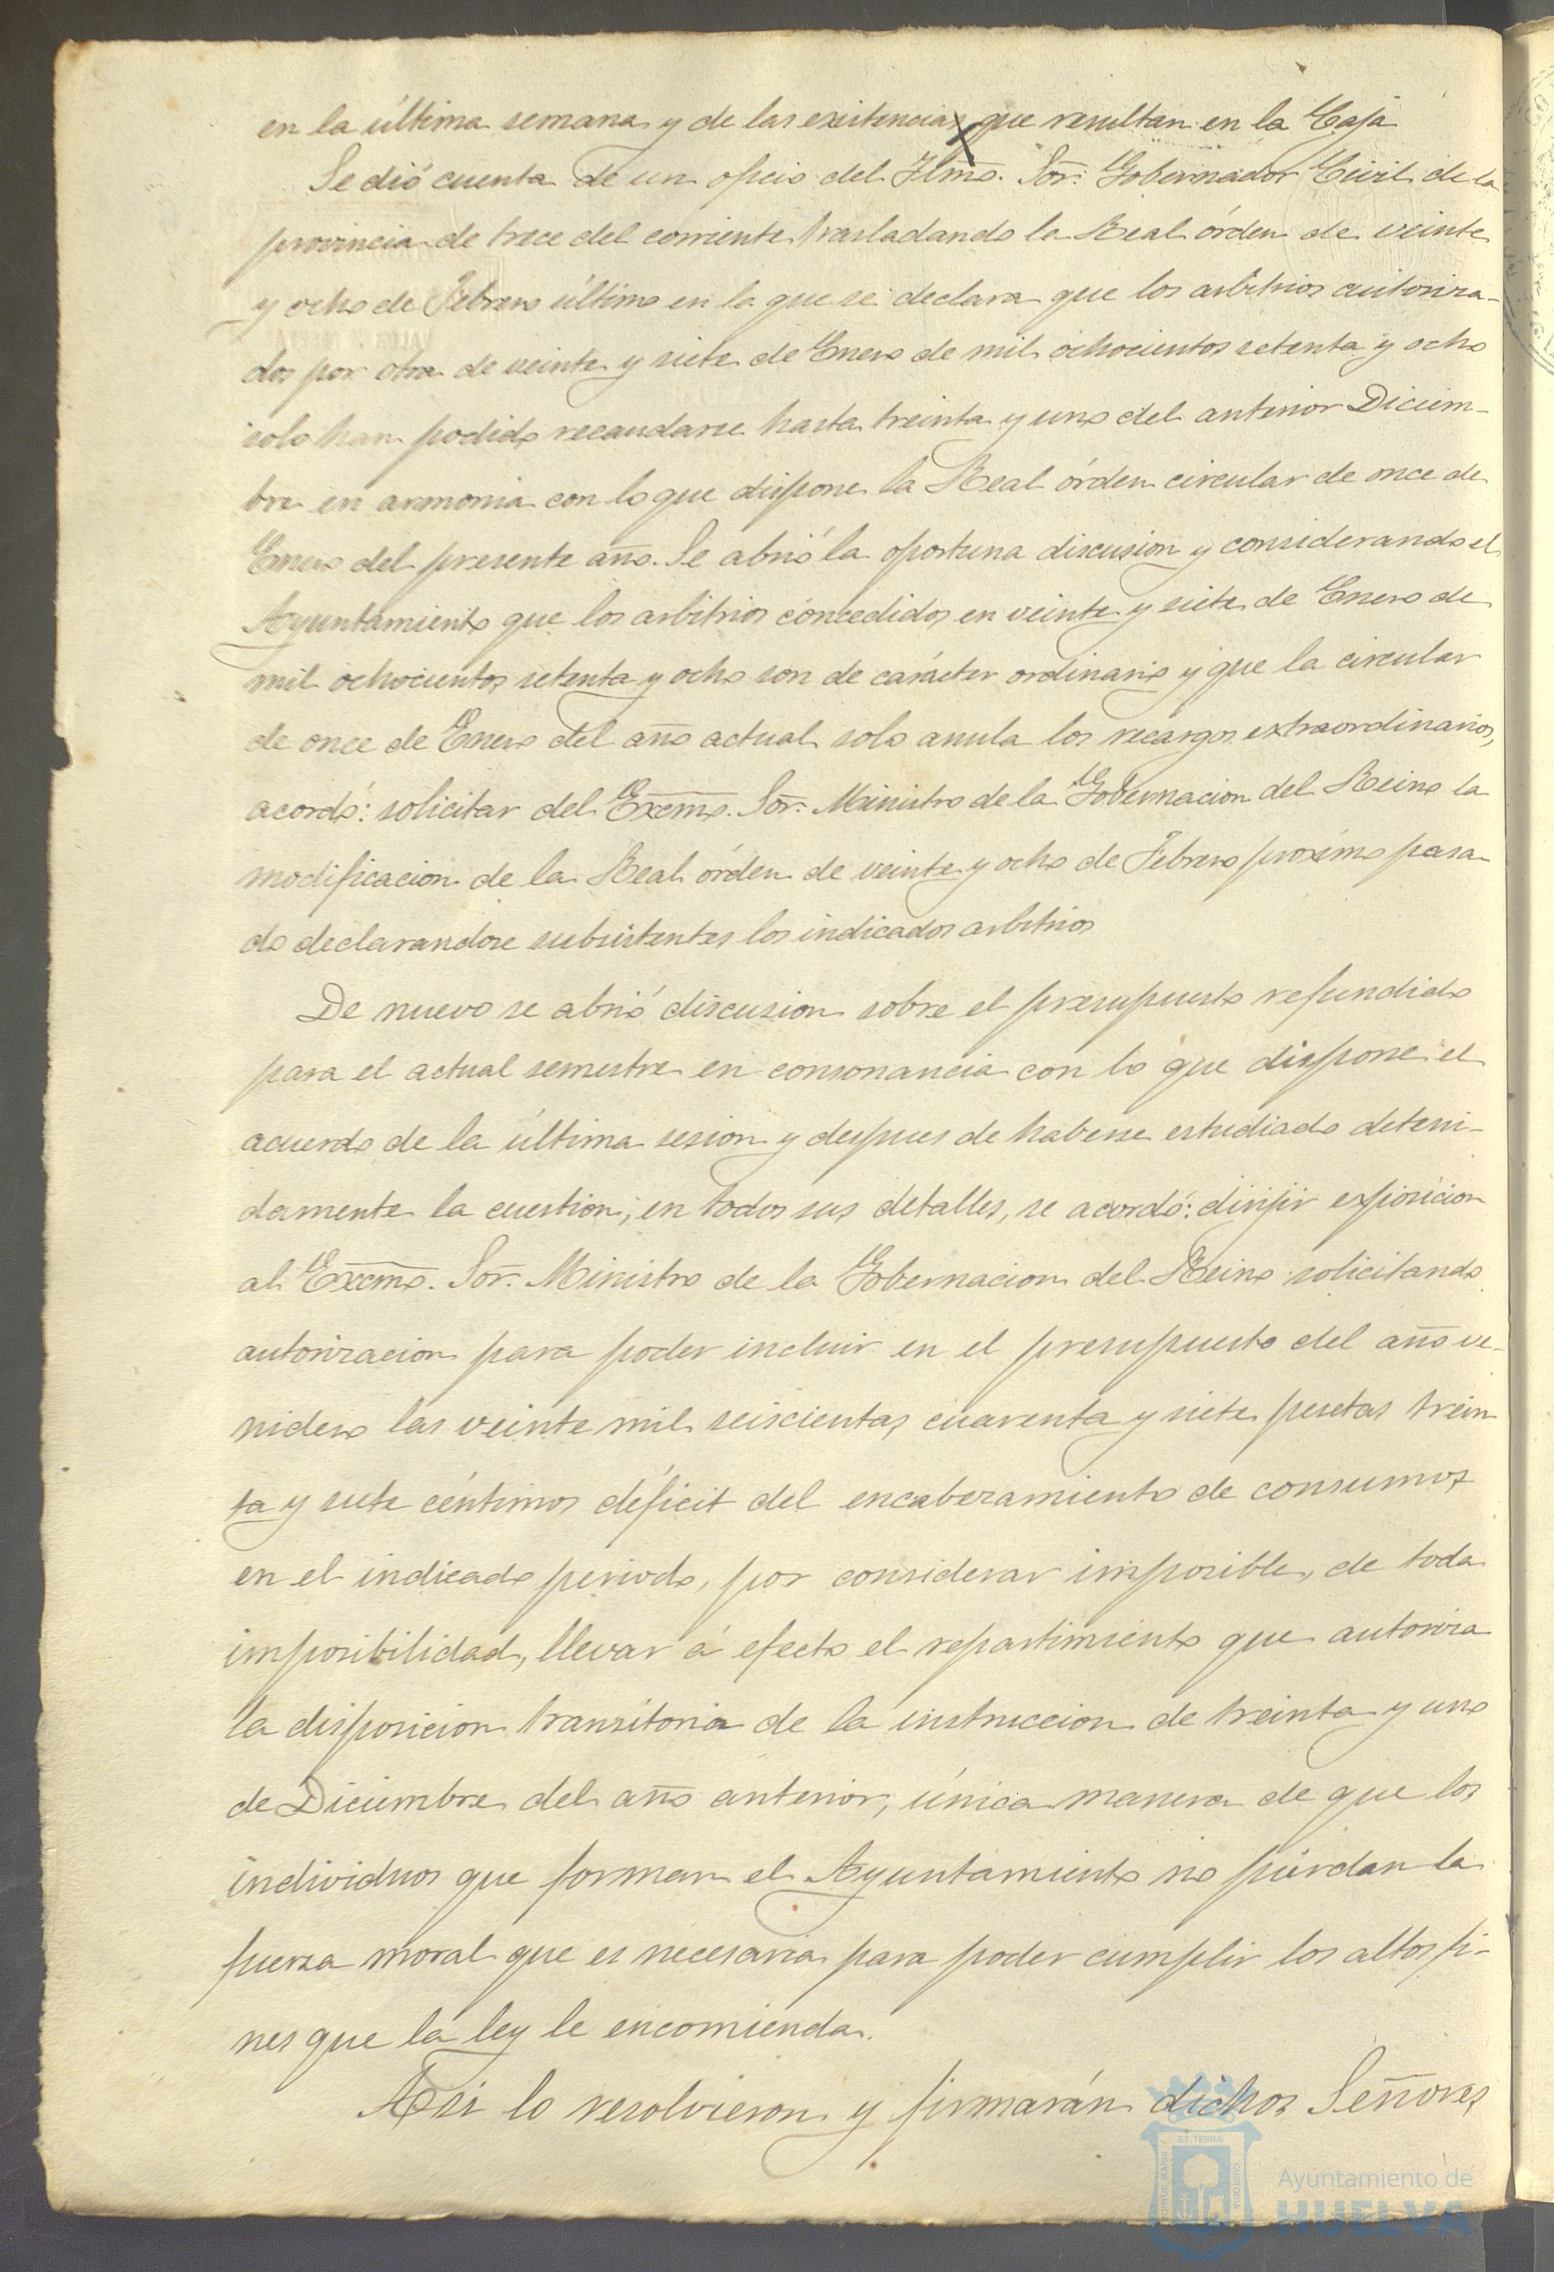 en la última semana y de las existencias que resultan en la Caja
Se dió cuenta de un oficio del Ylmo. Sor. Gobernador Civil de la
provincia de trece del corriente trasladando la Real órden de veinte
y ocho de Febrero último en la que se declara que los arbitrios autoriza-
dos por otra de veinte y siete de Enero de mil ochocientos setenta y ocho
solo han podido recaudarse hasta treinta y uno del anterior Diciem-
bre en armonia con lo que dispone la Real órden circular de once de
Enero del presente año. Se abrió la oportuna discusion y considerando el
Ayuntamiento que los arbitrios concedidos en veinte y siete de Enero de
mil ochocientos setenta y ocho son de carácter ordinario y que la circular
de once de Enero del año actual solo anula los recargos extraordinarios,
acordó: solicitar del Excmo. Sor. Ministro de la Gobernacion del Reino la
modificacion de la Real órden de veinte y ocho de Febrero próximo pasa-
do declarandose subsistentes los indicados arbitrios
De nuevo se abrió discusion sobre el presupuesto refundido
para el actual semestre en consonancia con lo que dispone el
acuerdo de la última sesion y despues de haberse estudiado deteni-
damente la cuestion, en todos sus detalles, se acordó: dirijir exposicion
al Excmo. Sor. Ministro de la Gobernacion del Reino solicitando
autorizacion para poder incluir en el presupuesto del año ve-
nidero las veinte mil seiscientas cuarenta y siete pesetas trein
ta y siete céntimos déficit del encabezamiento de consumos
en el indicado periodo, por considerar imposible, de toda
imposibilidad, llevar á efecto el repartimiento que autoriza
la disposicion transitoria de la instruccion de treinta y uno
de Diciembre del año anterior, única manera de que los
individuos que forman el Ayuntamiento no pierdan la
fuerza moral que es necesaria para poder cumplir los altos fi-
nes que la ley le encomienda.
Asi lo resolvieron y firmarán dichos Señores
Ayuntamiento de
HUELVA